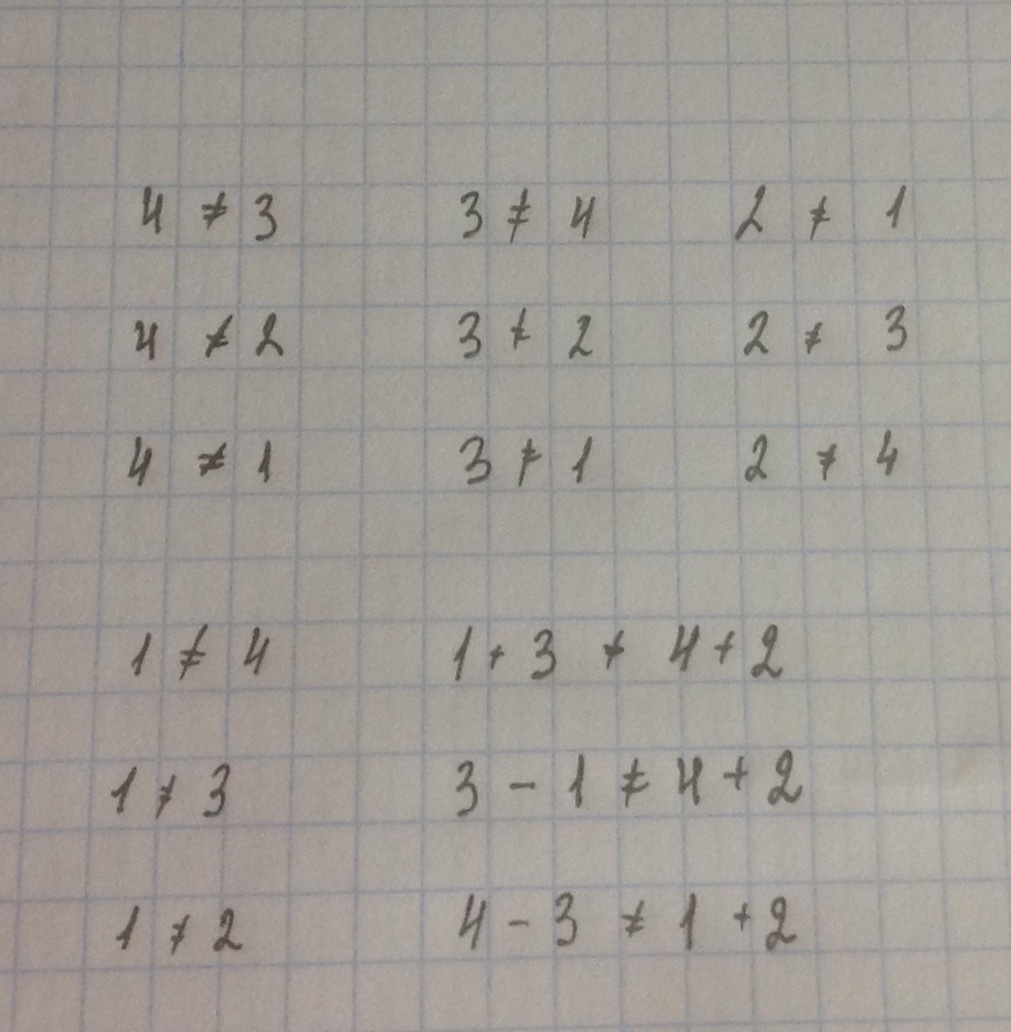 4 ≠ 3 3 ≠ 4 2 ≠ 1
4 ≠ 2 3 ≠ 2 2 ≠ 3
4 ≠ 1 3 ≠ 1 2 ≠ 4
1 ≠ 4 1 + 3 ≠ 4 + 2
1 ≠ 3 3 - 1 ≠ 4 + 2
1 ≠ 2 4 - 3 ≠ 1 + 2